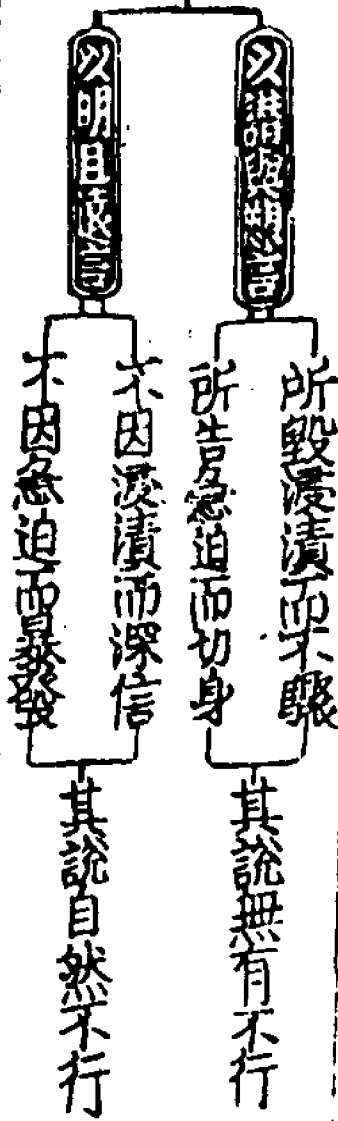 以譖與愬言
所毀浸漬而不驟
所告急迫而切身
其說無有不行
以明且遠言
不因浸漬而深信
不因急迫而暴發
其說自然不行